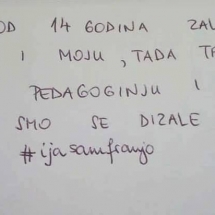 OD 14 GODINA ZAL
I MOJU, TADA TR
PEDAGOGINJU I
SMO SE DIZALE
#ijasamfranjo